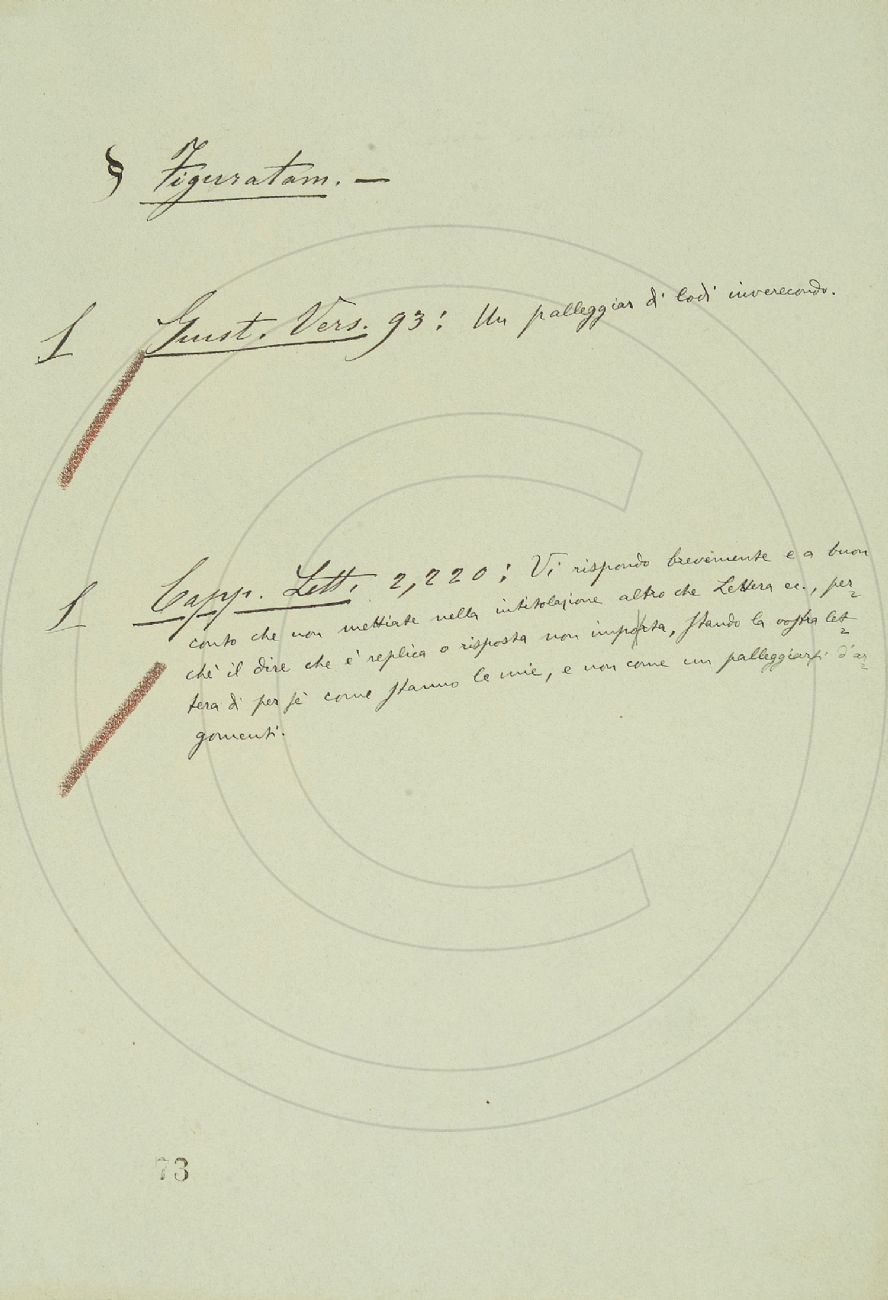 § Figuratam. —
S Giust. Vers. 93: Un palleggiar di lodi inverecondo.
S Capp. Lett. 2,220: Vi rispondo brevemente e a buon
conto che non mettiate nella intitolazione altro che Lettera ec., per-
chè il dire che è replica o risposta non importa, stando la vostra let-
tera di per sè come stanno le mie, e non come un palleggiarsi d'ar-
gomenti.
73